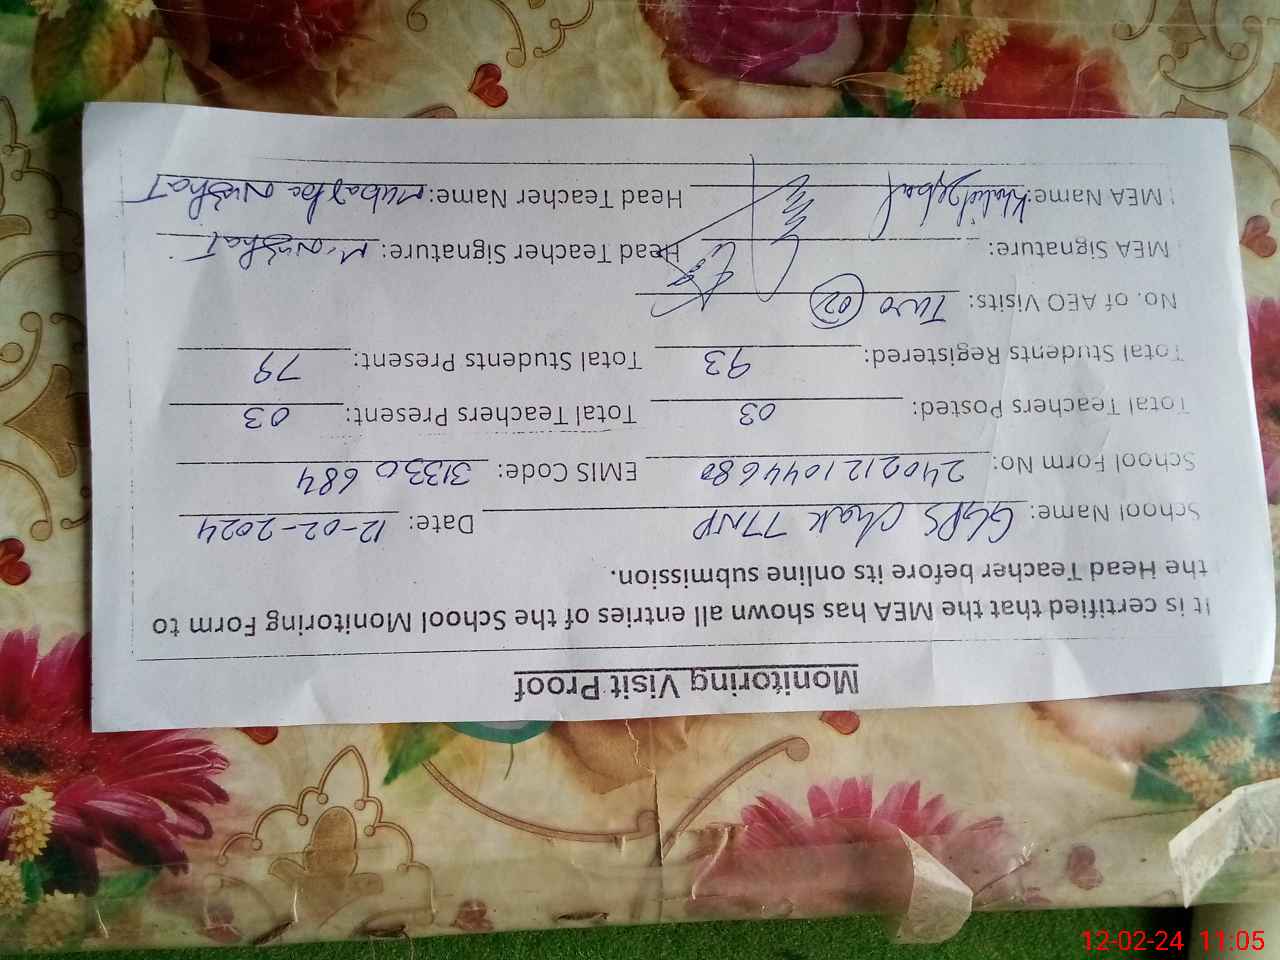 Monitoring Visit Proof
It is certified that the MEA has shown all entries of the School Monitoring Form to
the Head Teacher before its online submission.
School Name: GGPS Chak 77NP Date: 12-02-2024
School Form No: 240212104468 EMIS Code: 31330684
Total Teachers Posted: 03 Total Teachers Present: 03
Total Students Registered: 93 Total Students Present: 79
No. of AEO Visits: Two 02
MEA Signature: Head Teacher Signature: M. Nushat
MEA Name: Khalid Iqbal Head Teacher Name: Nushat
12-02-24 11:05